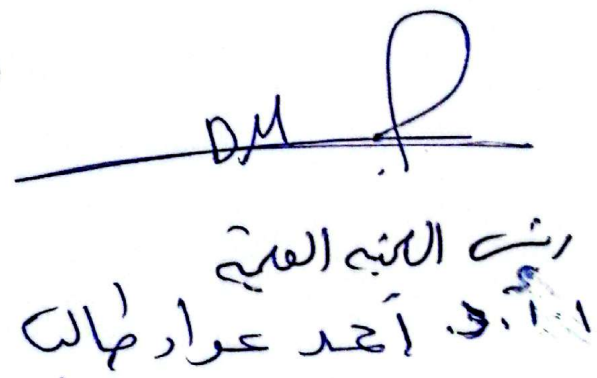 رئيس اللجنة العلمية
أ.د. أحمد عواد طالب